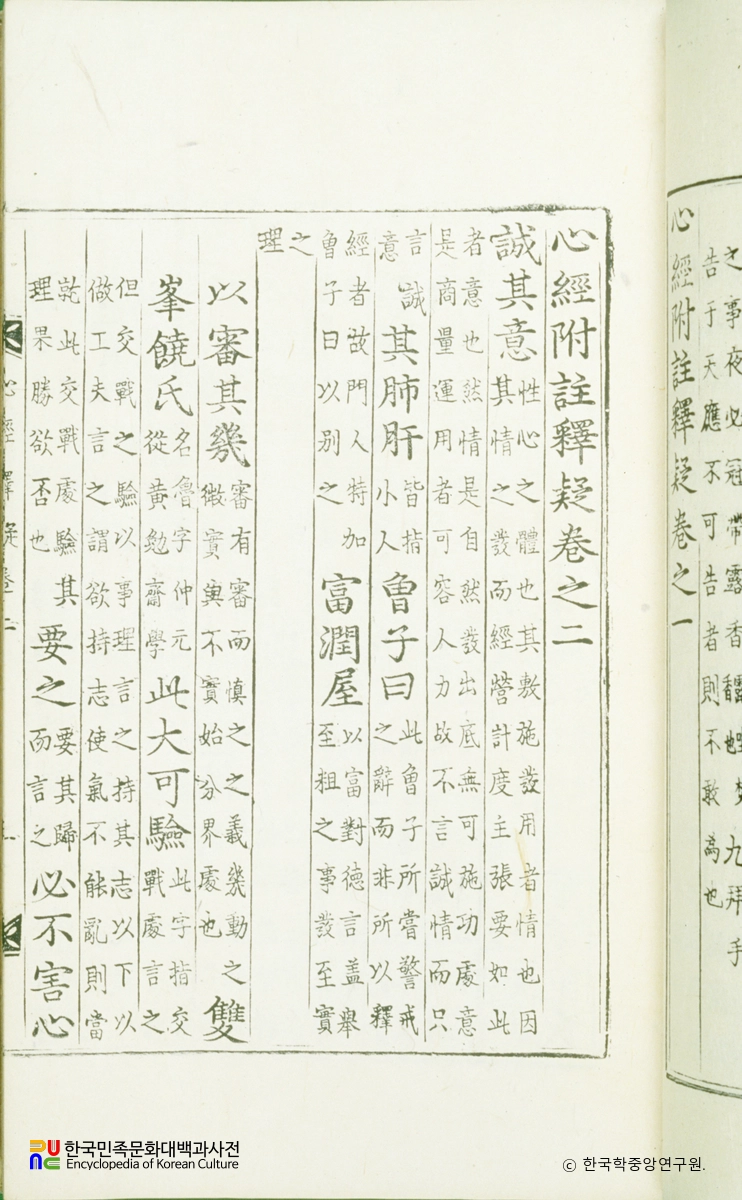 之事夜必冠帶露香
九拜手
告于天應不可告者則不敢爲也
心經附註釋疑卷之一
心經附註釋疑卷之二
誠其意 性心之體也其敷施發用者情也因
其情之發而經營計度主張要如此
者意也然情是自然發出底無可施功處意
是商量運用者可容人力故不言誠情而只
言誠
意 其肺肝 皆指
小人 曾子曰 此曾子所嘗警戒
之辭而非所以釋
經者故門人特加
曾子曰以別之 富潤屋 以富對德言盖擧
至粗之事發至實
之
理
以審其幾 審有審而愼之之義幾動之
微實與不實始分界處也 雙
峯饒氏 名魯字仲元
從黃勉齋學 此大可驗 此字指交
戰處言之
但交戰之驗以事理言之持其志以下以
做工夫言之謂欲持志使氣不能亂則當
就此交戰處驗其
理果勝欲否也 要之 要其歸
而言之 必不害心
心經釋疑卷二
한국민족문화대백과사전
Encyclopedia of Korean Culture
ⓒ 한국학중앙연구원.